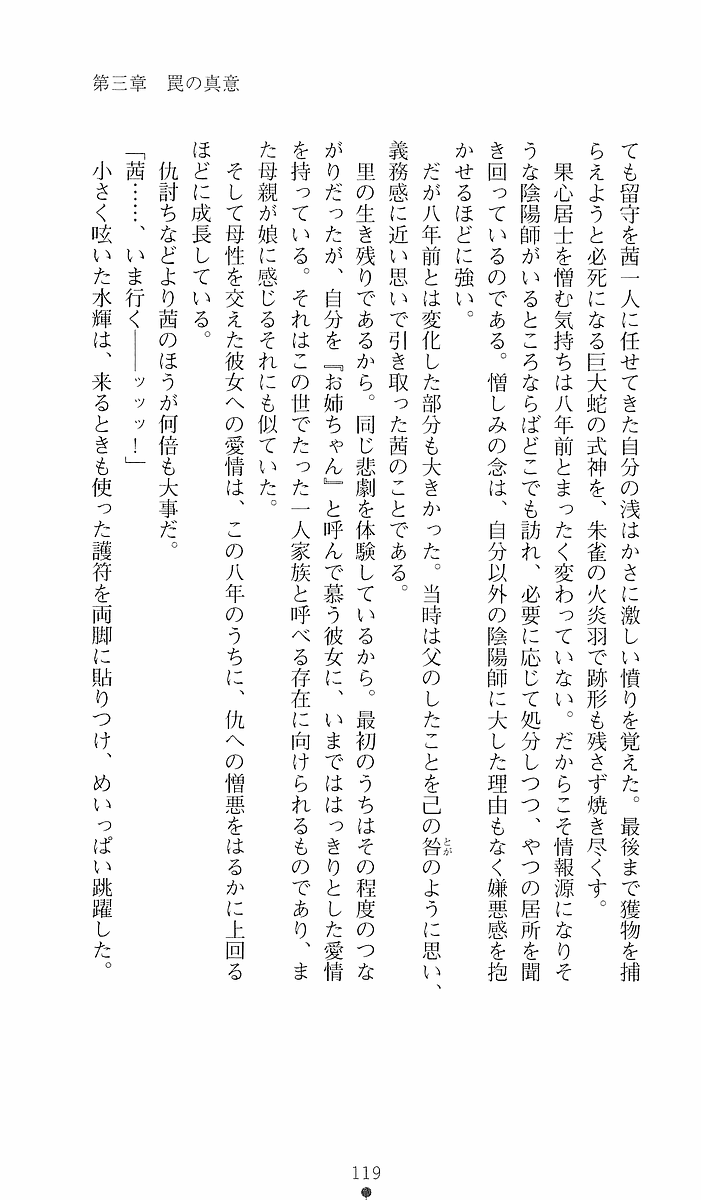 第三章　罠の真意
ても留守を茜一人に任せてきた自分の浅はかさに激しい憤りを覚えた。最後まで獲物を捕
らえようと必死になる巨大蛇の式神を、朱雀の火炎羽で跡形も残さず焼き尽くす。
　果心居士を憎む気持ちは八年前とまったく変わっていない。だからこそ情報源になりそ
うな陰陽師がいるところならばどこでも訪れ、必要に応じて処分しつつ、やつの居所を聞
き回っているのである。憎しみの念は、自分以外の陰陽師に大した理由もなく嫌悪感を抱
かせるほどに強い。
　だが八年前とは変化した部分も大きかった。当時は父のしたことを己の咎とがのように思い、
義務感に近い思いで引き取った茜のことである。
　里の生き残りであるから。同じ悲劇を体験しているから。最初のうちはその程度のつな
がりだったが、自分を『お姉ちゃん』と呼んで慕う彼女に、いまでははっきりとした愛情
を持っている。それはこの世でたった一人家族と呼べる存在に向けられるものであり、ま
た母親が娘に感じるそれにも似ていた。
　そして母性を交えた彼女への愛情は、この八年のうちに、仇への憎悪をはるかに上回る
ほどに成長している。
　仇討ちなどより茜のほうが何倍も大事だ。
「茜……、いま行く――ッッッ！」
　小さく呟いた水輝は、来るときも使った護符を両脚に貼りつけ、めいっぱい跳躍した。
119